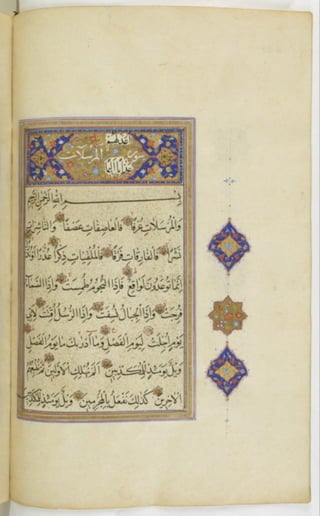 سورة المرسلات
بسم الله الرحمن الرحيم
والمرسلات عرفا فالعاصفات عصفا والناشرات
نشرا فالفارقات فرقا فالملقيات ذكرا عذرا او نذرا
انما توعدون لواقع فاذا النجوم طمست واذا السماء
فرجت واذا الجبال نسفت واذا الرسل اقتت لاي
يوم اجلت ليوم الفصل وما ادريك ما يوم الفصل
ويل يومئذ للمكذبين الم نهلك الاولين ثم نتبعهم
الاخرين كذلك نفعل بالمجرمين ويل يومئذ للمكذبين